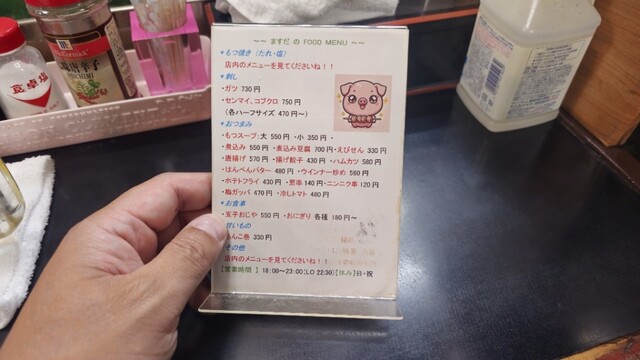 ～～ ますだ の FOOD MENU ～～
*もつ焼き (たれ・塩)
店内のメニューを見てくださいね！！
*刺し
・ガツ 730円
・センマイ、コブクロ 750円
(各ハーフサイズ 470円～)
*おつまみ
・もつスープ：大 550円 ・小 350円 ・
・煮込み 550円 ・煮込み豆腐 700円・えびせん 330円
・唐揚げ 570円 ・揚げ餃子 430円 ・ハムカツ 580円
・はんぺんバター 480円 ・ウインナー炒め 560円
・ポテトフライ 430円 ・煎串 140円・ニンニク串 120円
・梅ガッパ 470円 ・冷しトマト 480円
*お食事
・玉子おじや 550円 ・おにぎり 各種 180円～
甘いもの
あんこ巻 330円
その他
店内のメニューを見てくださいね！！
【営業時間】 18:00～23:00(LO 22:30)【休み】日・祝
McCormick
唐辛子
食卓塩